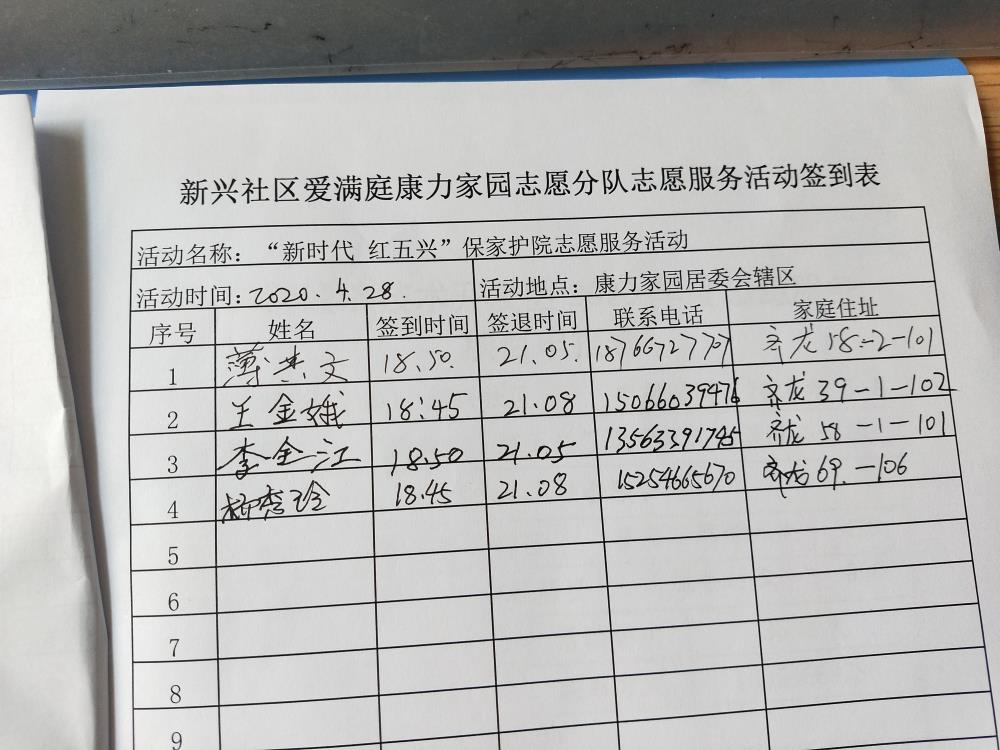 新兴社区爱满庭康力家园志愿分队志愿服务活动签到表
活动名称：“新时代 红五兴”保家护院志愿服务活动
活动时间：2020.4.28. 活动地点：康力家园居委会辖区
序号 姓名 签到时间 签退时间 联系电话 家庭住址
1 薄其文 18.50. 21.05. 18766727707 齐龙 58-2-101
2 王金娥 18:45 21.08 15066039476 齐龙 39-1-102
3 李金江 18.50 21.05 13563391745 齐龙 58-1-101
4 杨秀玲 18.45 21.08 15254665670 齐龙 69-106
5
6
7
8
9